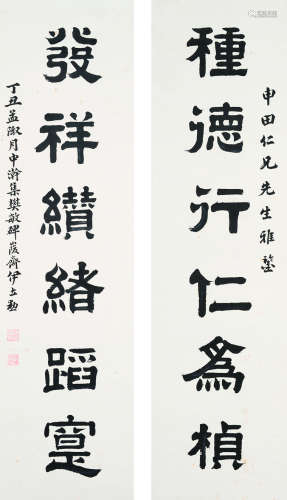 申田仁兄先生雅鑒
種德行仁爲楨
發祥纘緒蹈寔
丁丑孟陬月中澣集樊敏碑峻齋伊立勳